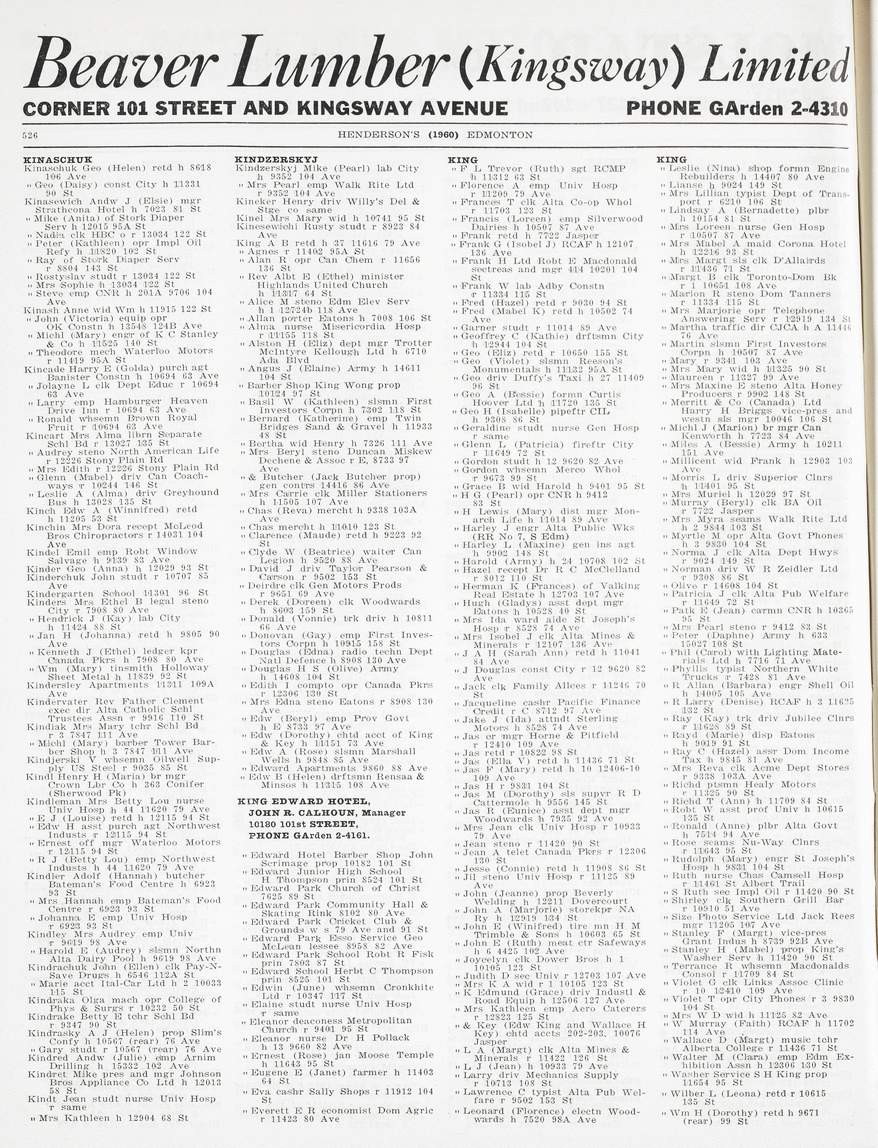 Beaver Lumber (Kingsway) Limited
CORNER 101 STREET AND KINGSWAY AVENUE PHONE GArden 2-4310
526 HENDERSON'S (1960) EDMONTON
KINASCHUK
Kinaschuk Geo (Helen) retd h 8618
106 Ave
" Geo (Daisy) const City h 11331
90 St
Kinasewich Andw J (Elsie) mgr
Strathcona Hotel h 7023 81 St
" Mike (Anita) of Stork Diaper
Serv h 12015 95A St
" Nadia clk HBC o r 13034 122 St
" Peter (Kathleen) opr Impl Oil
Refy h 11820 102 St
" Ray of Stork Diaper Serv
r 8804 143 St
" Rostyslav studt r 13034 122 St
" Mrs Sophie h 13034 122 St
" Steve emp CNR h 201A 9706 104
Ave
Kinash Anne wid Wm h 11915 122 St
" John (Victoria) equip opr
OK Constn h 13548 124B Ave
" Michl (Mary) engr of K C Stanley
& Co h 11525 140 St
" Theodore mech Waterloo Motors
r 11419 95A St
Kincade Harry E (Golda) purch agt
Banister Constn h 10694 63 Ave
" Jolayne L clk Dept Educ r 10694
63 Ave
" Larry emp Hamburger Heaven
Drive Inn r 10694 63 Ave
" Ronald whsemn Brown Royal
Fruit r 10694 63 Ave
Kincart Mrs Alma librn Separate
Schl Bd r 13027 135 St
" Audrey steno North American Life
r 12226 Stony Plain Rd
" Mrs Edith r 12226 Stony Plain Rd
" Glenn (Mabel) driv Can Coach-
ways r 10244 146 St
" Leslie A (Alma) driv Greyhound
Bus h 13028 135 St
Kinch Edw A (Winnifred) retd
h 11205 53 St
Kinchin Mrs Dora recept McLeod
Bros Chiropractors r 14031 104
Ave
Kindel Emil emp Robt Window
Salvage h 9139 83 Ave
Kinder Geo (Anna) h 12029 93 St
Kinderchuk John studt r 10707 85
Ave
Kindergarten School 11301 96 St
Kinders Mrs Ethel B legal steno
City r 7908 80 Ave
" Hendrick J (Kay) lab City
h 11424 88 St
" Jan H (Johanna) retd h 9805 90
Ave
" Kenneth J (Ethel) ledger kpr
Canada Pkrs h 7908 80 Ave
" Wm (Mary) tinsmith Holloway
Sheet Metal h 11839 92 St
Kindersley Apartments 11311 109A
Ave
Kindervater Rev Father Clement
exec dir Alta Catholic Schl
Trustees Assn r 9916 110 St
Kindiak Mrs Mary tchr Schl Bd
r 3 7847 111 Ave
" Michl (Mary) barber Tower Bar-
ber Shop h 3 7847 111 Ave
Kindjerski V whsemn Oilwell Sup-
ply US Steel r 9035 85 St
Kindl Henry H (Maria) br mgr
Crown Lbr Co h 363 Conifer
(Sherwood Pk)
Kindleman Mrs Betty Lou nurse
Univ Hosp h 44 11620 79 Ave
" E J (Louise) retd h 12115 94 St
" Edw H asst purch agt Northwest
Industs r 12115 94 St
" Ernest off mgr Waterloo Motors
r 12115 94 St
" R J (Betty Lou) emp Northwest
Industs h 44 11620 79 Ave
Kindler Adolf (Hannah) butcher
Bateman's Food Centre h 6923
93 St
" Mrs Hannah emp Bateman's Food
Centre r 6923 93 St
" Johanna E emp Univ Hosp
r 6923 93 St
Kindley Mrs Audrey emp Univ
r 9619 98 Ave
" Harold E (Audrey) slsmn Northn
Alta Dairy Pool h 9619 98 Ave
Kindrachuk John (Ellen) clk Pay-N-
Save Drugs h 6546 112A St
" Marie acct Ital-Car Ltd h 2 10033
115 St
Kindraka Olga mach opr College of
Phys & Surgs r 10232 50 St
Kindrake Betty E tchr Schl Bd
r 9347 90 St
Kindrasky A J (Helen) prop Slim's
Confy h 10567 (rear) 76 Ave
" Gary studt r 10567 (rear) 76 Ave
Kindred Andw (Julie) emp Arnim
Drilling h 15332 102 Ave
Kindret Mike pres and mgr Johnson
Bros Appliance Co Ltd h 12013
58 St
Kindt Jean studt nurse Univ Hosp
r same
" Mrs Kathleen h 12904 68 St
KINDZERSKYJ
Kindzerskyj Mike (Pearl) lab City
h 9352 104 Ave
" Mrs Pearl emp Walk Rite Ltd
r 9352 104 Ave
Kineker Henry driv Willy's Del &
Stge co same
Kinel Mrs Mary wid h 10741 95 St
Kinesewichi Rusty studt r 8923 84
Ave
King A B retd h 37 11616 79 Ave
" Agnes r 11402 95A St
" Alan R opr Can Chem r 11656
136 St
" Rev Albt E (Ethel) minister
Highlands United Church
h 11317 64 St
" Alice M steno Edm Elev Serv
h 1 12724b 118 Ave
" Allan porter Eatons h 7008 106 St
" Alma nurse Misericordia Hosp
r 11155 118 St
" Alston H (Eliz) dept mgr Trotter
McIntyre Kellough Ltd h 6710
Ada Blvd
" Angus J (Elaine) Army h 14611
104 St
" Barber Shop King Wong prop
10124 97 St
" Basil W (Kathleen) slsmn First
Investors Corpn h 7302 118 St
" Bernard (Katherine) emp Twin
Bridges Sand & Gravel h 11933
48 St
" Bertha wid Henry h 7326 111 Ave
" Mrs Beryl steno Duncan Miskew
Dechene & Assoc r E, 8733 97
Ave
" & Butcher (Jack Butcher prop)
gen contrs 14416 86 Ave
" Mrs Carrie clk Miller Stationers
h 11505 107 Ave
" Chas (Reva) mercht h 9338 103A
Ave
" Chas mercht h 11010 123 St
" Clarence (Maude) retd h 9223 92
St
" Clyde W (Beatrice) waiter Can
Legion h 9520 88 Ave
" David J driv Taylor Pearson &
Carson r 9502 153 St
" Deirdre clk Gen Motors Prods
r 9651 69 Ave
" Derek (Doreen) clk Woodwards
h 8603 159 St
" Donald (Vonnie) trk driv h 10811
66 Ave
" Donovan (Gay) emp First Inves-
tors Corpn h 10915 158 St
" Douglas (Edna) radio techn Dept
Natl Defence h 8908 130 Ave
" Douglas H S (Olive) Army
h 14608 104 St
" Edith I compto opr Canada Pkrs
r 12306 130 St
" Mrs Edna steno Eatons r 8908 130
Ave
" Edw (Beryl) emp Prov Govt
h E 8733 97 Ave
" Edw (Dorothy) chtd acct of King
& Key h 11151 73 Ave
" Edw A (Rose) slsmn Marshall
Wells h 9848 85 Ave
" Edward Apartments 9860 88 Ave
" Edw B (Helen) drftsmn Rensaa &
Minsos h 11315 108 Ave
KING EDWARD HOTEL,
JOHN R. CALHOUN, Manager
10180 101st STREET,
PHONE GArden 2-4161.
" Edward Hotel Barber Shop John
Scrimage prop 10182 101 St
" Edward Junior High School
H Thompson prin 8524 101 St
" Edward Park Church of Christ
7625 89 St
" Edward Park Community Hall &
Skating Rink 8102 80 Ave
" Edward Park Cricket Club &
Grounds w s 79 Ave and 91 St
" Edward Park Esso Service Geo
McLean lessee 8958 82 Ave
" Edward Park School Robt R Fisk
prin 7803 87 St
" Edward School Herbt C Thompson
prin 8525 101 St
" Edwin (June) whsemn Cronkhite
Ltd r 10347 117 St
" Elaine studt nurse Univ Hosp
r same
" Eleanor deaconess Metropolitan
Church r 9401 95 St
" Eleanor nurse Dr H Pollack
h 13 9660 82 Ave
" Ernest (Rose) jan Moose Temple
h 11643 95 St
" Eugene E (Janet) farmer h 11403
64 St
" Eva cashr Sally Shops r 11912 104
St
" Everett E R economist Dom Agric
r 11423 80 Ave
KING
" F L Trevor (Ruth) sgt RCMP
h 11312 63 St
" Florence A emp Univ Hosp
r 11209 79 Ave
" Frances T clk Alta Co-op Whol
r 11703 123 St
" Francis (Loreen) emp Silverwood
Dairies h 10507 87 Ave
" Frank retd h 7722 Jasper
" Frank G (Isobel J) RCAF h 12107
136 Ave
" Frank H Ltd Robt E Macdonald
sectreas and mgr 414 10201 104
St
" Frank W lab Adby Constn
r 11334 115 St
" Fred (Hazel) retd r 9030 94 St
" Fred (Mabel K) retd h 10502 74
Ave
" Garner studt r 11014 89 Ave
" Geoffrey C (Kathie) drftsmn City
h 12944 104 St
" Geo (Eliz) retd r 10650 155 St
" Geo (Violet) slsmn Reeson's
Monumentals h 11132 95A St
" Geo driv Duffy's Taxi h 27 11409
96 St
" Geo A (Bessie) formn Curtis
Hoover Ltd h 11720 135 St
" Geo H (Isabelle) pipeftr CIL
h 9308 86 St
" Geraldine studt nurse Gen Hosp
r same
" Glenn L (Patricia) fireftr City
r 11649 72 St
" Gordon studt h 12 9620 82 Ave
" Gordon whsemn Merco Whol
r 9673 99 St
" Grace B wid Harold h 9401 95 St
" H G (Pearl) opr CNR h 9412
83 St
" H Lewis (Mary) dist mgr Mon-
arch Life h 11014 89 Ave
" Harley J engr Alta Public Wks
(RR No 7, S Edm)
" Harley L (Maxine) gen ins agt
h 9902 148 St
" Harold (Army) h 24 10708 102 St
" Hazel recept Dr R C McClelland
r 8012 110 St
" Herman K (Frances) of Valking
Real Estate h 12703 107 Ave
" Hugh (Gladys) asst dept mgr
Eatons h 10528 40 St
" Mrs Ida ward aide St Joseph's
Hosp r 8528 74 Ave
" Mrs Isobel J clk Alta Mines &
Minerals r 12107 136 Ave
" J A H (Sarah Ann) retd h 11041
84 Ave
" J Douglas const City r 12 9620 82
Ave
" Jack clk Family Allces r 11246 70
St
" Jacqueline cashr Pacific Finance
Credit r C 8712 97 Ave
" Jake J (Ida) attndt Sterling
Motors h 8528 74 Ave
" Jas cr mgr Horne & Pitfield
r 12410 109 Ave
" Jas retd r 10822 98 St
" Jas (Ella V) retd h 11436 71 St
" Jas F (Mary) retd h 10 12406-10
109 Ave
" Jas H r 9831 104 St
" Jas M (Dorothy) sls supvr R D
Cattermole h 9556 145 St
" Jas R (Eunice) asst dept mgr
Woodwards h 7935 92 Ave
" Mrs Jean clk Univ Hosp r 10933
79 Ave
" Jean steno r 11420 90 St
" Jean A telet Canada Pkrs r 12306
130 St
" Jesse (Connie) retd h 11908 86 St
" Jil steno Univ Hosp r 11125 89
Ave
" John (Jeanne) prop Beverly
Welding h 12211 Dovercourt
" John A (Marjorie) storekpr NA
Ry h 12919 134 St
" John E (Winifred) tire mn H M
Trimble & Sons h 10603 65 St
" John E (Ruth) meat ctr Safeways
h 6 4425 102 Ave
" Joycelyn clk Dower Bros h 1
10105 123 St
" Judith D sec Univ r 12703 107 Ave
" Mrs K A wid r 1 10105 123 St
" K Edmund (Grace) div Industl &
Road Equip h 12506 127 Ave
" Mrs Kathleen emp Aero Caterers
r 12823 125 St
" & Key (Edw King and Wallace H
Key) chtd accts 202-203, 10076
Jasper
" L A (Margt) clk Alta Mines &
Minerals r 11422 126 St
" L J (Jean) h 10933 79 Ave
" Larry driv Mechanics Supply
r 10713 108 St
" Lawrence C typist Alta Pub Wel-
fare r 9502 153 St
" Leonard (Florence) electn Wood-
wards h 7520 98A Ave
KING
" Leslie (Nina) shop formn Engine
Rebuilders h 14407 80 Ave
" Lianse h 9024 149 St
" Mrs Lillian typist Dept of Trans-
port r 6210 106 St
" Lindsay A (Bernadette) plbr
h 10154 81 St
" Mrs Loreen nurse Gen Hosp
r 10507 87 Ave
" Mrs Mabel A maid Corona Hotel
h 12216 93 St
" Mrs Margt sls clk D'Allairds
r 11436 71 St
" Margt B clk Toronto-Dom Bk
r 1 10651 108 Ave
" Marion R steno Dom Tanners
r 11334 115 St
" Mrs Marjorie opr Telephone
Answering Serv r 12919 134 St
" Martha traffic dir CJCA h A 11446
76 Ave
" Martin slsmn First Investors
Corpn h 10507 87 Ave
" Mary r 9341 103 Ave
" Mrs Mary wid h 11325 90 St
" Maureen r 11327 99 Ave
" Mrs Maxine E steno Alta Honey
Producers r 9902 148 St
" Merritt & Co (Canada) Ltd
Harry H Briggs vice-pres and
westn sls mgr 10046 106 St
" Michl J (Marion) br mgr Can
Kenworth h 7723 84 Ave
" Miles A (Bessie) Army h 10211
151 Ave
" Millicent wid Frank h 12903 103
Ave
" Morris L driv Superior Clnrs
h 11401 95 St
" Mrs Muriel h 12029 97 St
" Murray (Beryl) clk BA Oil
r 7722 Jasper
" Mrs Myra seams Walk Rite Ltd
h 2 9844 103 St
" Myrtle M opr Alta Govt Phones
h 3 9830 104 St
" Norma J clk Alta Dept Hwys
r 9024 149 St
" Norman driv W R Zeidler Ltd
r 9308 86 St
" Olive r 14608 104 St
" Patricia J clk Alta Pub Welfare
r 11649 72 St
" Patk E (Jean) carmn CNR h 10365
95 St
" Mrs Pearl steno r 9412 83 St
" Peter (Daphne) Army h 633
15027 108 St
" Phil (Carol) with Lighting Mate-
rials Ltd h 7716 71 Ave
" Phyllis typist Northern White
Trucks r 7428 81 Ave
" R Allan (Barbara) engr Shell Oil
h 14005 105 Ave
" R Larry (Denise) RCAF h 3 11625
132 St
" Ray (Kay) trk driv Jubilee Clnrs
r 11628 89 St
" Rayd (Marie) disp Eatons
h 9019 91 St
" Ray C (Hazel) assr Dom Income
Tax h 9845 81 Ave
" Mrs Reva clk Acme Dept Stores
r 9338 103A Ave
" Richd ptsmn Healy Motors
r 11325 90 St
" Richd T (Ann) h 11709 84 St
" Robt W asst prof Univ h 10615
135 St
" Ronald (Anne) plbr Alta Govt
h 7514 94 Ave
" Rose seams Nu-Way Clnrs
r 11643 95 St
" Rudolph (Mary) engr St Joseph's
Hosp h 9831 104 St
" Ruth nurse Chas Camsell Hosp
r 11461 St Albert Trail
" S Ruth sec Impl Oil r 11420 90 St
" Shirley clk Southern Grill Bar
r 10910 51 Ave
" Size Photo Service Ltd Jack Rees
mgr 11205 107 Ave
" Stanley F (Margt) vice-pres
Grant Indus h 8739 92B Ave
" Stanley H (Mabel) prop King's
Washer Serv h 11420 90 St
" Terrance R whsemn Macdonalds
Consol r 11709 84 St
" Violet G clk Links Assoc Clinic
r 10 12410 109 Ave
" Violet T opr City Phones r 3 9830
104 St
" Mrs W D wid h 11125 82 Ave
" W Murray (Faith) RCAF h 11702
114 Ave
" Wallace D (Margt) music tchr
Alberta College r 11436 71 St
" Walter M (Clara) emp Edm Ex-
hibition Assn h 12306 130 St
" Washer Service S H King prop
11654 95 St
" Wilber L (Leona) retd r 10615
135 St
" Wm H (Dorothy) retd h 9671
(rear) 99 St